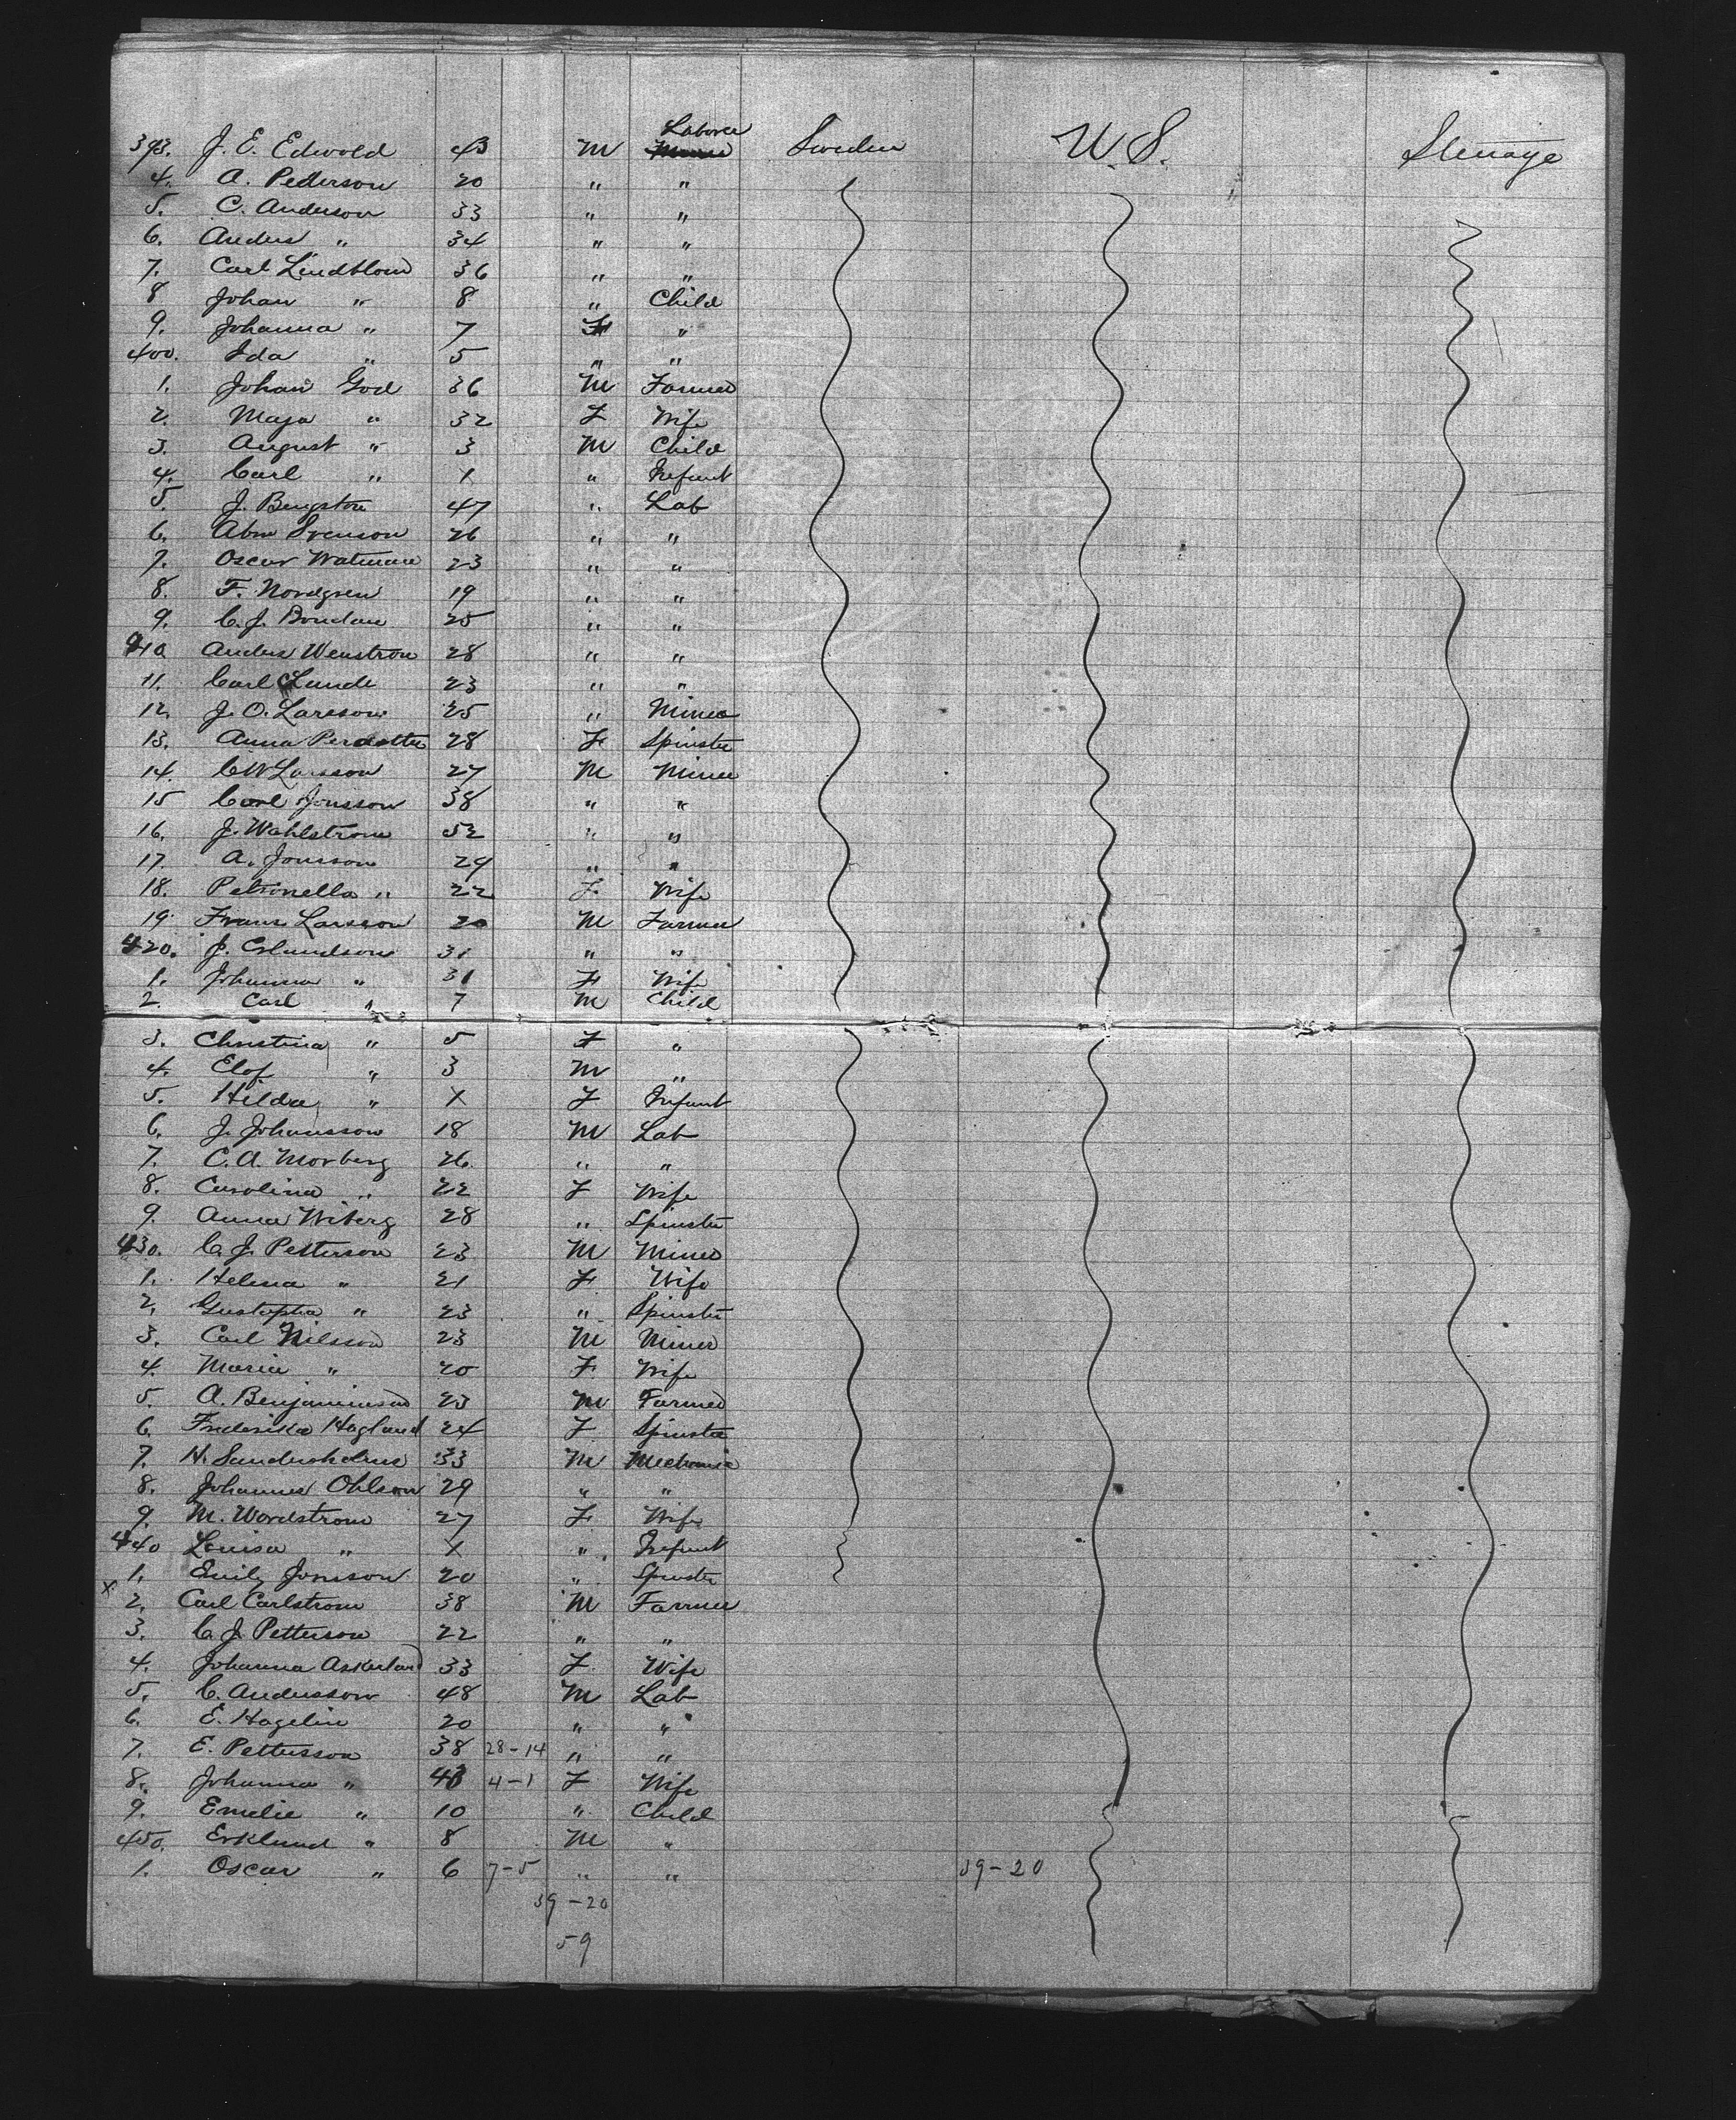 393. J. E. Edwold 43 M Laborer Sweden U.S. Steerage
4. A. Pederson 20 " "
5. C. Anderson 33 " "
6. Anders " 34 " "
7. Carl Lindblom 36 " "
8 Johan " 8 " Child
9. Johanna " 7 F "
400. Ida " 5 " "
1. Johan God 36 M Farmer
2. Maja " 32 F Wife
3. August " 3 M Child
4. Carl " 1 " Infant
5. J. Bengston 47 " Lab
6. Abm Svenson 26 " "
7. Oscar 23 " "
8. F. Nordgren 19 " "
9. C. J. 25 " "
410 Anders Wenstrom 28 " "
11. Carl Lunde 23 " "
12. J. O. Larsson 25 " Miner
13. Anna Perdotter 28 F Spinster
14. C W Larsson 27 M Miner
15 Carl Jonsson 38 " "
16. J. Wahlstrom 52 " "
17 A. Jonsson 29 " "
18. Petronella " 22 F Wife
19. Frans Larsson 20 M Farmer
420. J. 31 " "
1. Johanna " 31 F Wife
2. Carl " 7 M Child
3. Christina " 5 F "
4. Elof " 3 M "
5. Hilda " X F Infant
6. J. Johansson 18 M Lab
7. C. A. Morberg 26 " "
8. Carolina " 22 F Wife
9. Anna Wiberg 28 " Spinster
430. C. J. Petterson 23 M Miner
1. Helena " 21 F Wife
2. " 23 " Spinster
3. Carl Nilsson 23 M Miner
4. Maria " 20 F Wife
5. A. Benjaminson 23 M Farmer
6. Frederika Hogland 24 F Spinster
7. N. Sandersholm 33 M Mechanic
8. Johannes Ohlson 29 " "
9. M. Wordstrom 27 F Wife
440 Louisa " X " Infant
1. Emily Jonsson 20 " Spinster
X 2. Carl Carlstrom 38 M Farmer
3. C. J. Petterson 22 " "
4. Johanna 33 F Wife
5. C. Andersson 48 M Lab
6. E. Hagelin 20 " "
7. E. Pettersson 38 28-14 " "
8. Johanna " 43 4-1 F Wife
9. Emelie " 10 " Child
450. Erklund " 8 M "
1. Oscar " 6 7-5 " " 39-20
39-20
59